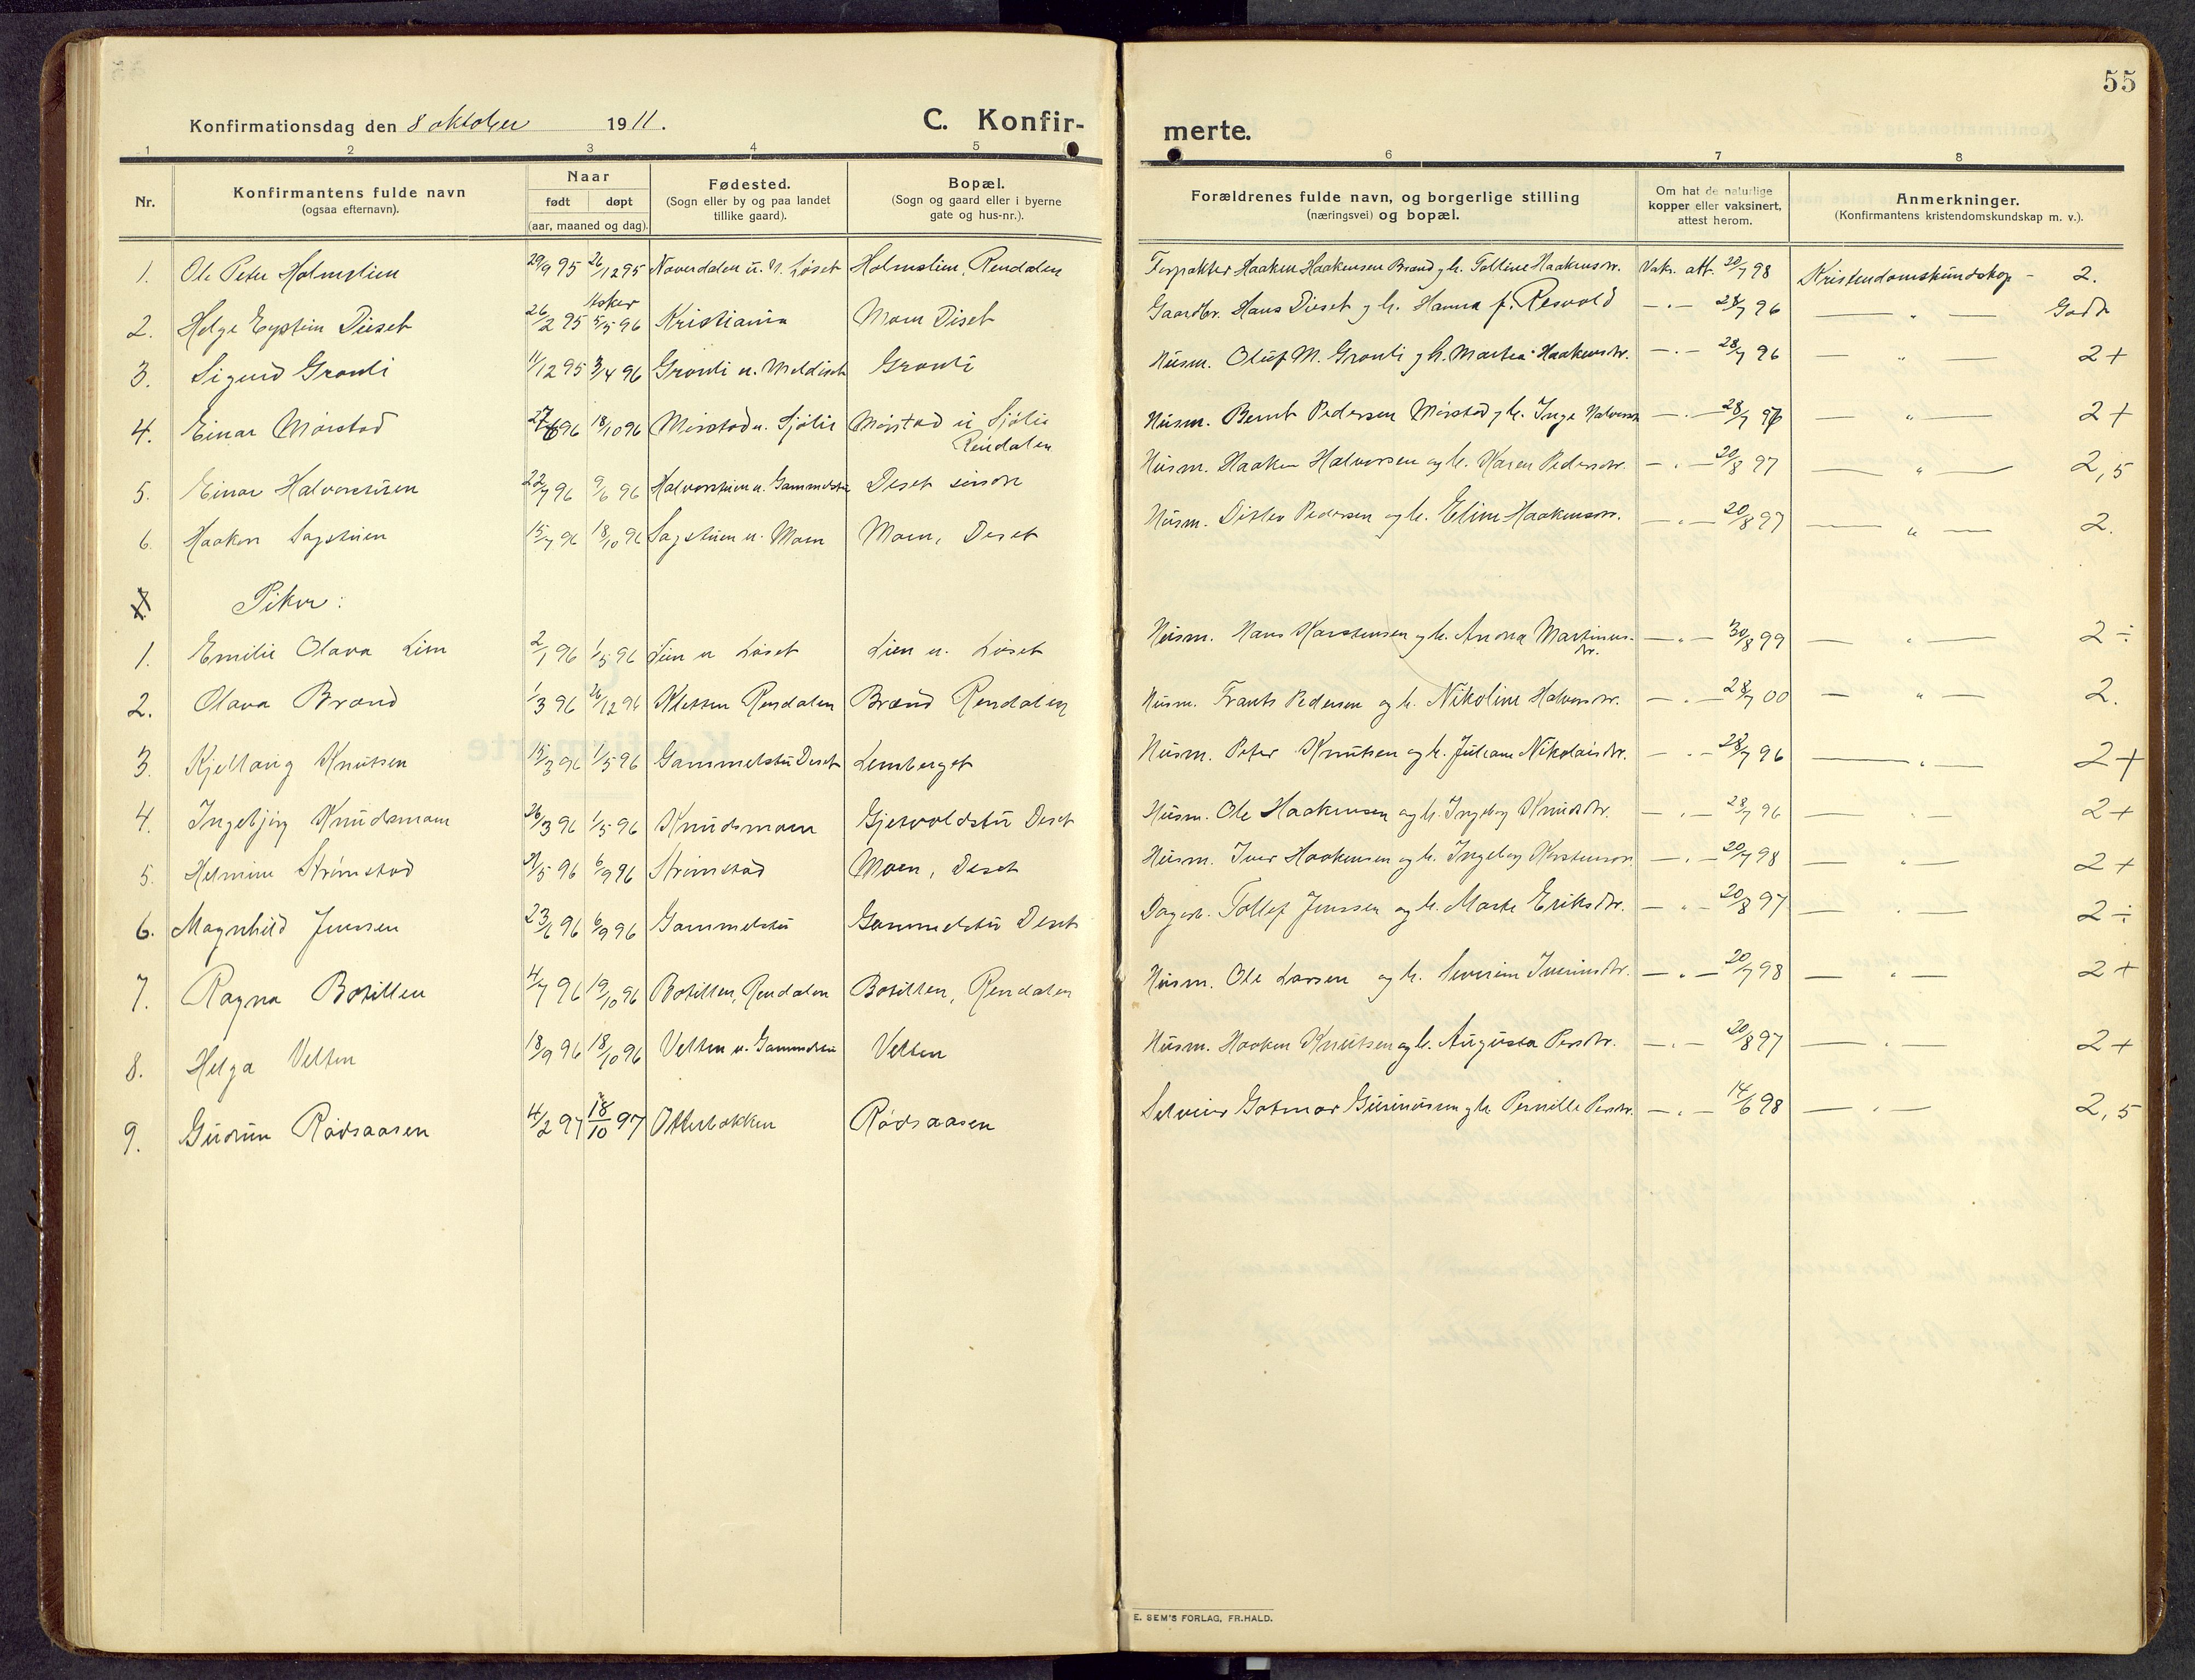 55
Konfirmationsdag den 8 oktober 1911.
C. Konfir-
merte.
1 2 3 4 5 6 7 8
Nr.
Konfirmantens fulde navn
(ogsaa efternavn).
Naar
født døpt
(aar, maaned og dag).
Fødested.
(Sogn eller by og paa landet
tillike gaard).
Bopæl.
(Sogn og gaard eller i byerne
gate og hus-nr.).
Forældrenes fulde navn, og borgerlige stilling
(næringsvei) og bopæl.
Om hat de naturlige
kopper eller vaksinert,
attest herom.
Anmerkninger.
(Konfirmantens kristendomskundskap m. v.).
1. Ole Peter Holmslien 29/9 95 26/12 95 Noverdalen u. N. Løset Holmslien, Rendalen Forpakter Haaken Haakensen Brænd g. h. Volline Haakensdr. Vaks. att. 20/7 98 Kristendomskundskap - 2.
2. Helge Eystein Dieset 26/2 95 Asker 5/5 96 Kristiania Moen Diset Gaardbr. Hans Dieset g h. Hanna f. Resvold — " — 28/7 96 — " — Godt
3. Sigurd Grønli 11/12 95 3/4 96 Grønli u. Meldiset Grønli Husm. Oluf M. Grønli g h. Martea Haakensdr. — " — 28/7 96 — " — 2+
4. Einar Mørstad 27/6 96 18/10 96 Mørstad u. Sjølie Mørstad u Sjølie Rendalen Husm. Bernt Pedersen Mørstad g h. Inga Halvorsdr — " — 28/7 96 — " — 2+
5. Einar Halvorstuen 22/7 96 9/6 96 Halvorstuen u. Gammelstu Deset søndre Husm. Haaken Halvorsen og h. Karen Pedersdr. — " — 20/8 97 — " — 2,5
6. Haaken Sagstuen 15/7 96 18/10 96 Sagstuen u. Moen Moen, Deset Husm. Ditlev Pedersen og h. Eline Haakensdr. — " — 20/8 97 — " — 2.
Piker:
1. Emilie Olava Lien 2/1 96 1/5 96 Lien u Løset Lien u. Løset Husm. Hans Karstensen g h. Andrea Martinus- dr. — " — 30/8 99 — " — 2 ÷
2. Olava Brænd 1/3 96 26/12 96 Kletten Rendalen Brænd Rendalen Husm. Frants Pedersen og h. Nikoline Halvorsdr. — " — 28/7 00 — " — 2.
3. Kjellaug Knutsen 15/3 96 1/5 96 Gammelstu Deset Lemberget Husm. Peter Knutsen og h. Juliane Nikolaisdr. — " — 28/7 96 — " — 2+
4. Ingebjørg Knudsmoen 26/3 96 1/5 96 Knudsmoen Gjetvoldstu Deset Husm. Ole Haakensen og h. Ingeborg Knudsdr. — " — 28/7 96 — " — 2+
5. Helmine Strømstad 21/5 96 6/9 96 Strømstad Moen, Deset Husm. Iver Haakensen og h. Ingeborg Karstensdr. — " — 20/7 98 — " — 2+
6. Magnhild Jenssen 23/6 96 6/9 96 Gammelstu Gammelstu Deset Dagarb. Tollef Jenssen og h. Marte Eriksdr. — " — 20/8 97 — " — 2 ÷
7. Ragna Botilten 4/7 96 19/10 96 Botilten, Rendalen Botilten, Rendalen Husm. Ole Larsen og h. Severine Iverinsdr. — " — 20/7 98 — " — 2+
8. Helga Velten 18/9 96 18/10 96 Velten u. Gammelstu Velten Husm. Haaken Knutsen og h. Augusta Persdr. — " — 20/8 97 — " — 2+
9. Gudrun Rødsaasen 4/2 97 18/10 97 Otterbækken Rødsaasen Selveier Gotmar g h Pernille Persdr. — " — 14/6 98 — " — 2,5
E. SEM'S FORLAG, FR.HALD.